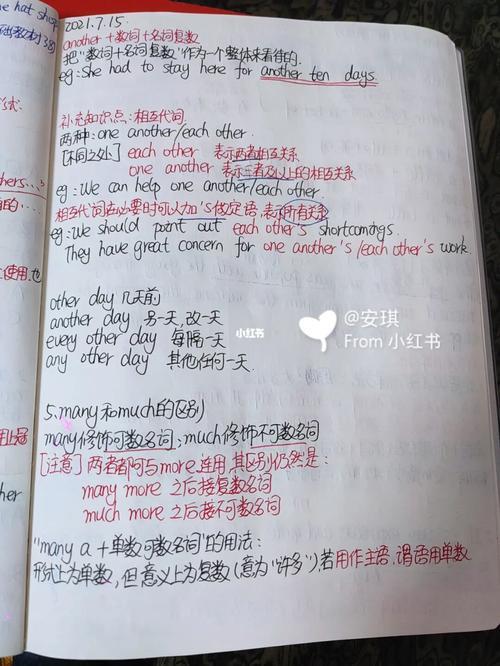 ne hat shop
础教材38)
2021.7.15
another + 数词 + 名词复数
把“数词+名词复数”作为一个整体来看待的.
eg: She had to stay here for another ten days.
补充知识点: 相互代词
两种: one another/each other.
[不同之处] each other 表示两者相互关系
one another 表示三者及以上的相互关系
eg: We can help one another/each other.
相互代词在必要时可以加's做定语,表示所有关系
eg: We should point out each other's shortcomings.
They have great concern for one another's /each other's work.
other day 几天前
another day 另一天,改一天
every other day 每隔一天
any other day 其他任何一天.
小红书
@安琪
From 小红书
5. many 和 much 的区别
many修饰可数名词; much修饰不可数名词
[注意] 两者都可与more连用,其区别仍然是:
many more 之后接复数名词
much more 之后接不可数名词
“many a + 单数可数名词”的用法:
形式上为单数,但意义上为复数(意为“许多”),若用作主语,谓语用单数